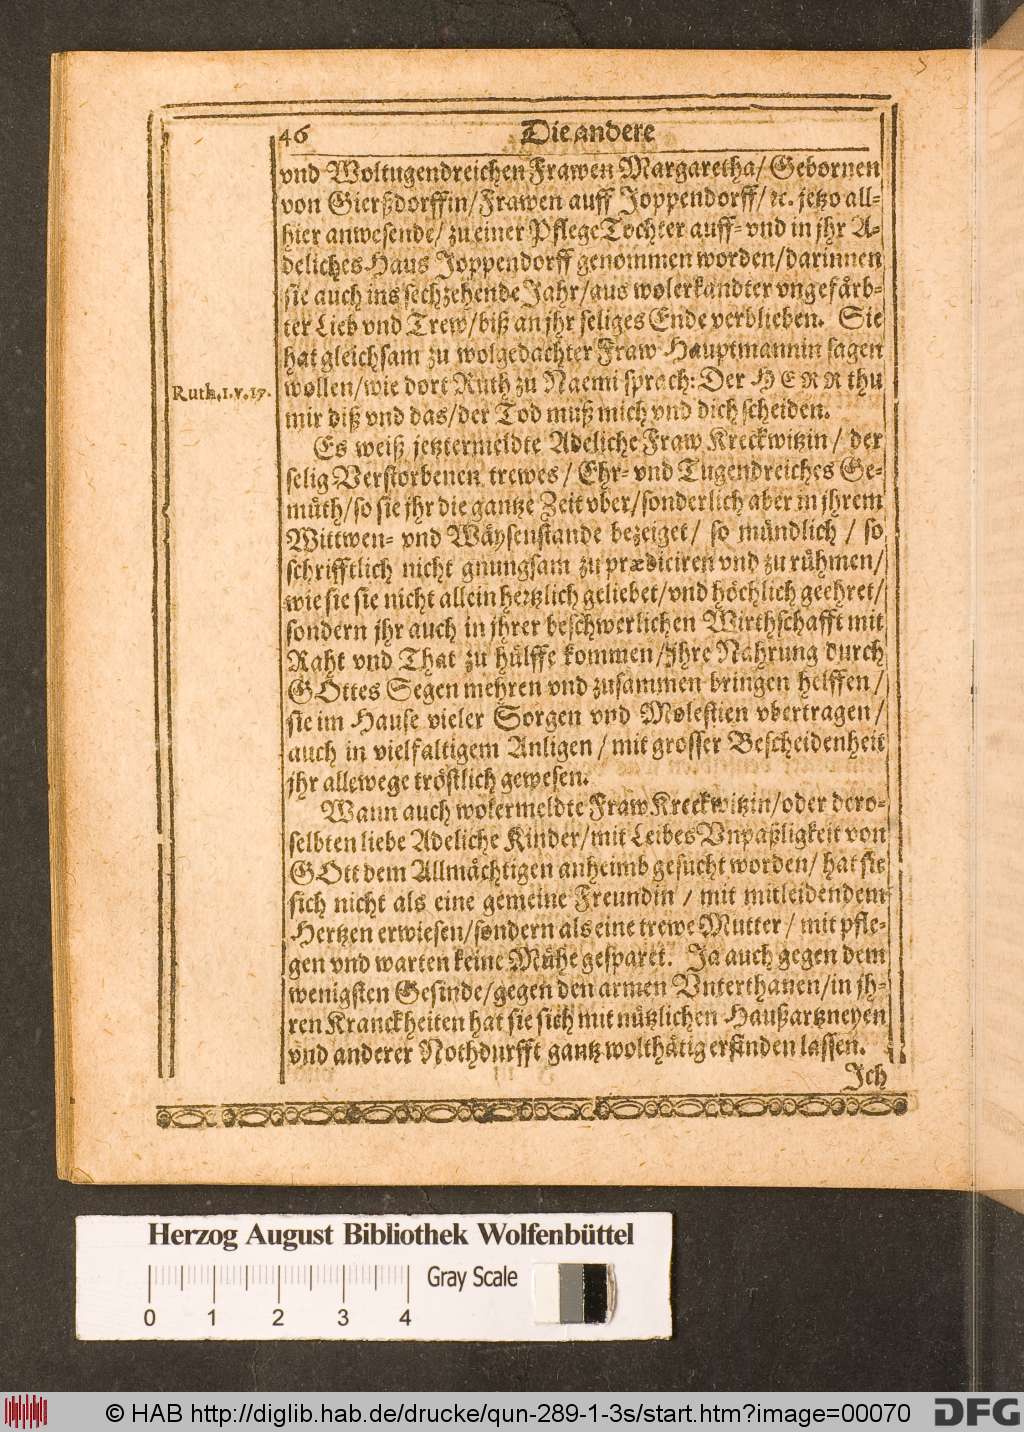 46 Die andere
vnd Woltugendreichen Frawen Margaretha/ Gebornen
von Gierßdorffin/ Frawen auff Joppendorff/ ꝛc. jetzo all-
hier anwesende/ zu einer PflegeTochter auff- vnd in jhr A-
deliches Haus Joppendorff genommen worden/ darinnen
sie auch ins sechzehende Jahr/ aus wolerkandter vngefärb-
ter Lieb vnd Trew/ biß an jhr seliges Ende verblieben. Sie
hat gleichsam zu wolgedachter Fraw Hauptmannin sagen
wollen/ wie dort Ruth zu Naemi sprach: Der HERR thu
Ruth. 1. v. 17.
mir diß vnd das/ der Tod muß mich vnd dich scheiden.
Es weiß jetztermeldte Adeliche Fraw Kreckwitzin/ der
selig-Verstorbenen trewes/ Ehr- vnd Tugendreiches Ge-
müth/ so sie jhr die gantze Zeit vber/ sonderlich aber in jhrem
Wittwen- vnd Wäysenstande bezeiget/ so mündlich/ so
schrifftlich nicht gnungsam zu prædiciren vnd zu rühmen/
wie sie sie nicht allein hertzlich geliebet/ vnd höchlich geehret/
sondern jhr auch in jhrer beschwerlichen Wirthschafft mit
Raht vnd That zu hülffe kommen/ Jhre Nahrung durch
GOttes Segen mehren vnd zusammen bringen helffen/
sie im Hause vieler Sorgen vnd Molestien vbertragen/
auch in vielfaltigem Anligen/ mit grosser Bescheidenheit
jhr allewege tröstlich gewesen.
Wann auch wolermeldte Fraw Kreckwitzin/ oder dero-
selbten liebe Adeliche Kinder/ mit Leibes Vnpaßligkeit von
GOtt dem Allmächtigen anheimb gesucht worden/ hat sie
sich nicht als eine gemeine Freundin/ mit mitleidendem
Hertzen erwiesen/ sondern als eine trewe Mutter/ mit pfle-
gen vnd warten keine Mühe gesparet. Ja auch gegen dem
wenigsten Gesinde/ gegen den armen Vnterthanen/ in jh-
ren Kranckheiten hat sie sich mit nützlichen Haußartzneyen
vnd anderer Nothdurfft gantz wolthätig erfinden lassen.
Jch
Herzog August Bibliothek Wolfenbüttel
Gray Scale
0 1 2 3 4
© HAB http://diglib.hab.de/drucke/qun-289-1-3s/start.htm?image=00070
DFG